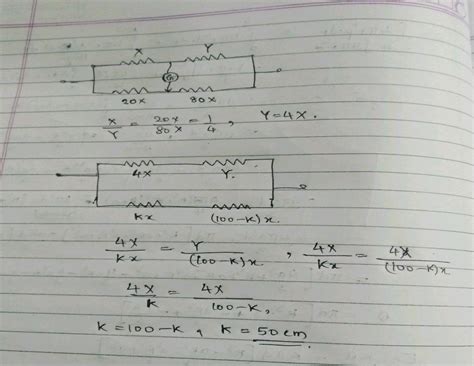 X Y
G
20x 80x
X/Y = 20x/80x = 1/4 , Y=4X.
4X Y.
Kx (100-K)x.
4X/Kx = Y/(100-K)x , 4X/Kx = 4X/(100-K)x
4X/K = 4X/100-K,
K=100-K , K = 50cm